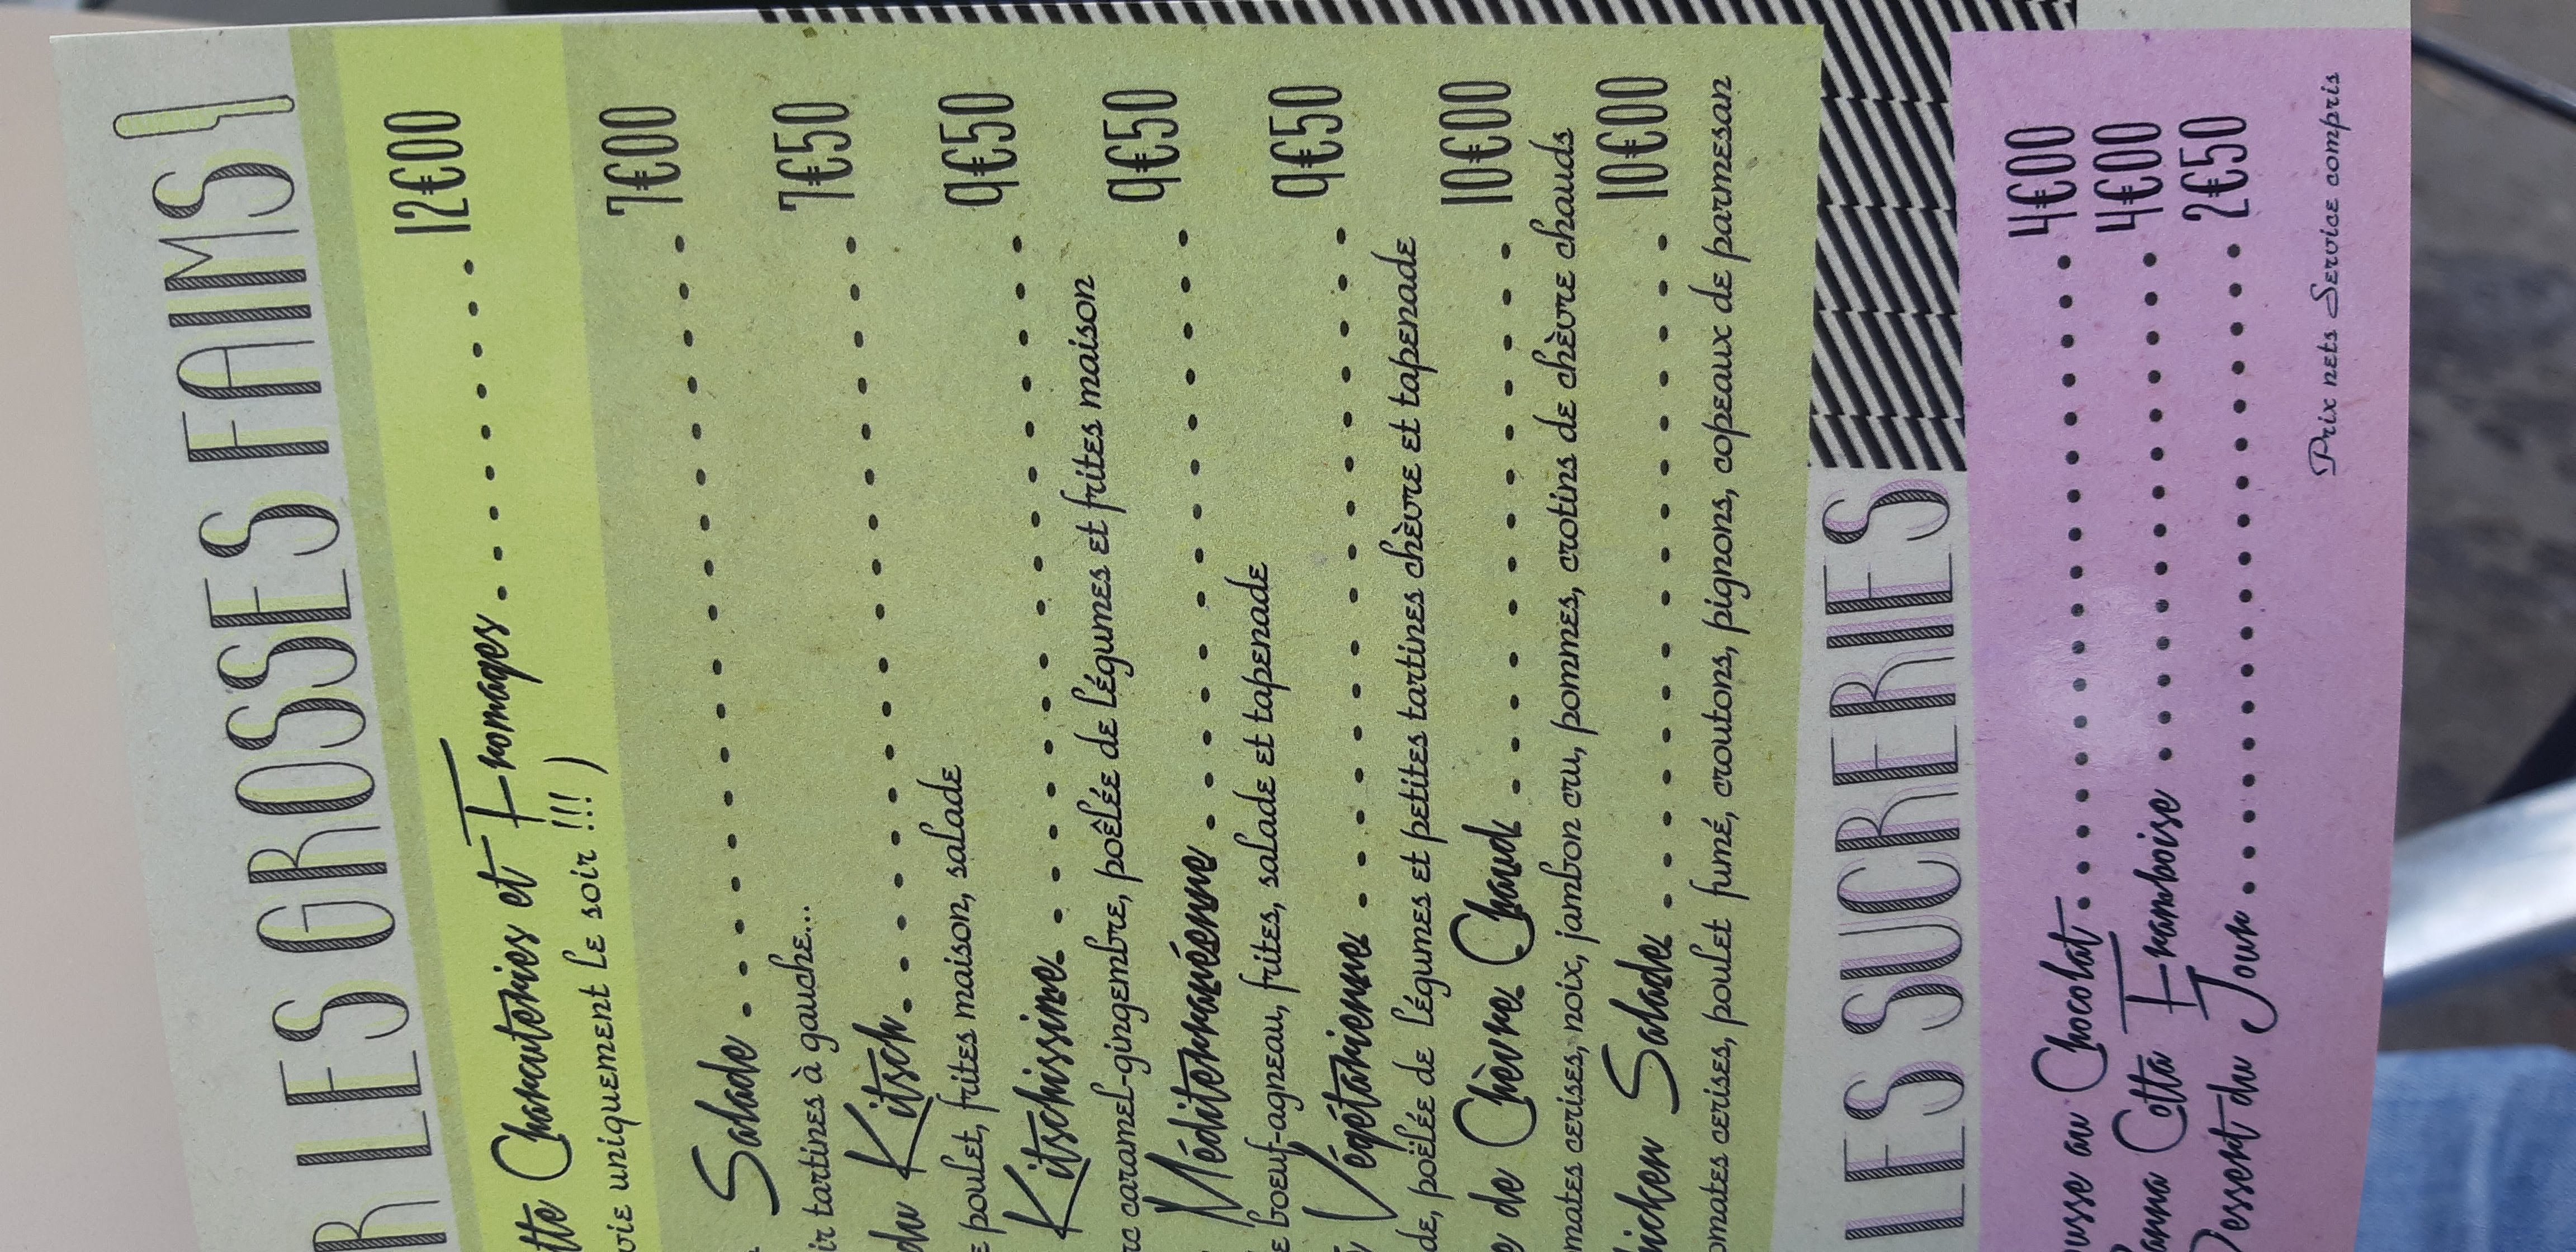 LES GROSSES FAIMS
Charcuteries et Fromages 12€00
uniquement le soir !!! )
Salade 7€00
tartines à gauche...
du Kitsch 7€50
poulet, frites maison, salade
Kitschissime 9€50
caramel-gingembre, poêlée de légumes et frites maison
Méditerranéenne 9€50
boeuf-agneau, frites, salade et tapenade
Végétarienne 9€50
poêlée de légumes et petites tartines chèvre et tapenade
de Chèvre Chaud 10€00
cerises, noix, jambon cru, pommes, crotins de chèvre chauds
Salade 10€00
cerises, poulet fumé, croutons, pignons, copeaux de parmesan
LES SUCRERIES
au Chocolat 4€00
Cotta Framboise 4€00
Dessert du Jour 2€50
Prix nets Service compris